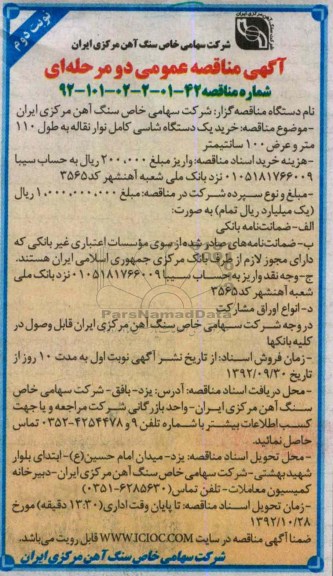 نوبت دوم
شرکت سهامی خاص سنگ آهن مرکزی ایران
آگهی مناقصه عمومی دو مرحله‌ای
شماره مناقصه ۴۲-۰۱-۲-۰۲-۱۰۱-۹۲
نام دستگاه مناقصه گزار: شرکت سهامی خاص سنگ آهن مرکزی ایران
-موضوع مناقصه: خرید یک دستگاه شاسی کامل نوار نقاله به طول ۱۱۰
متر و عرض ۱۰۰ سانتیمتر
-هزینه خرید اسناد مناقصه: واریز مبلغ ۲۰۰,۰۰۰ ریال به حساب سیبا
۰۱۰۵۱۸۱۷۶۶۰۰۹ نزد بانک ملی شعبه آهنشهر کد ۳۵۶۳
-مبلغ و نوع سپرده شرکت در مناقصه: مبلغ ۱,۰۰۰,۰۰۰,۰۰۰ ریال
(یک میلیارد ریال تمام) به صورت:
الف-ضمانت‌نامه بانکی
ب-ضمانت‌نامه‌های صادر شده از سوی مؤسسات اعتباری غیر بانکی که
دارای مجوز لازم از طرف بانک مرکزی جمهوری اسلامی ایران هستند.
ج-وجه نقد واریز به حساب سیبا ۰۱۰۵۱۸۱۷۶۶۰۰۹ نزد بانک ملی
شعبه آهنشهر کد ۳۵۶۳
د-انواع اوراق مشارکت
در وجه شرکت سهامی خاص سنگ آهن مرکزی ایران قابل وصول در
کلیه بانکها
-زمان فروش اسناد: از تاریخ نشر آگهی نوبت اول به مدت ۱۰ روز از
تاریخ ۱۳۹۲/۰۹/۳۰
-محل دریافت اسناد مناقصه: آدرس: یزد-بافق-شرکت سهامی خاص
سنگ آهن مرکزی ایران-واحد بازرگانی شرکت مراجعه و یا جهت
کسب اطلاعات بیشتر با شماره تلفن ۹ و ۴۲۵۴۴۷۸-۰۳۵۲ تماس
حاصل نمائید.
-محل تحویل اسناد مناقصه: یزد-میدان امام حسین(ع)-ابتدای بلوار
شهید بهشتی-شرکت سهامی خاص سنگ آهن مرکزی ایران-دبیرخانه
کمیسیون معاملات-تلفن تماس (۶۲۸۵۶۳۰-۰۳۵۱)
-زمان تحویل اسناد مناقصه: تا پایان وقت اداری (۱۳:۳۰ دقیقه) مورخ
۱۳۹۲/۱۰/۲۸
ضمنا آگهی مناقصه در سایت WWW.ICIOC.COM قابل رویت می‌باشد.
شرکت سهامی خاص سنگ آهن مرکزی ایران
ParsNamadData